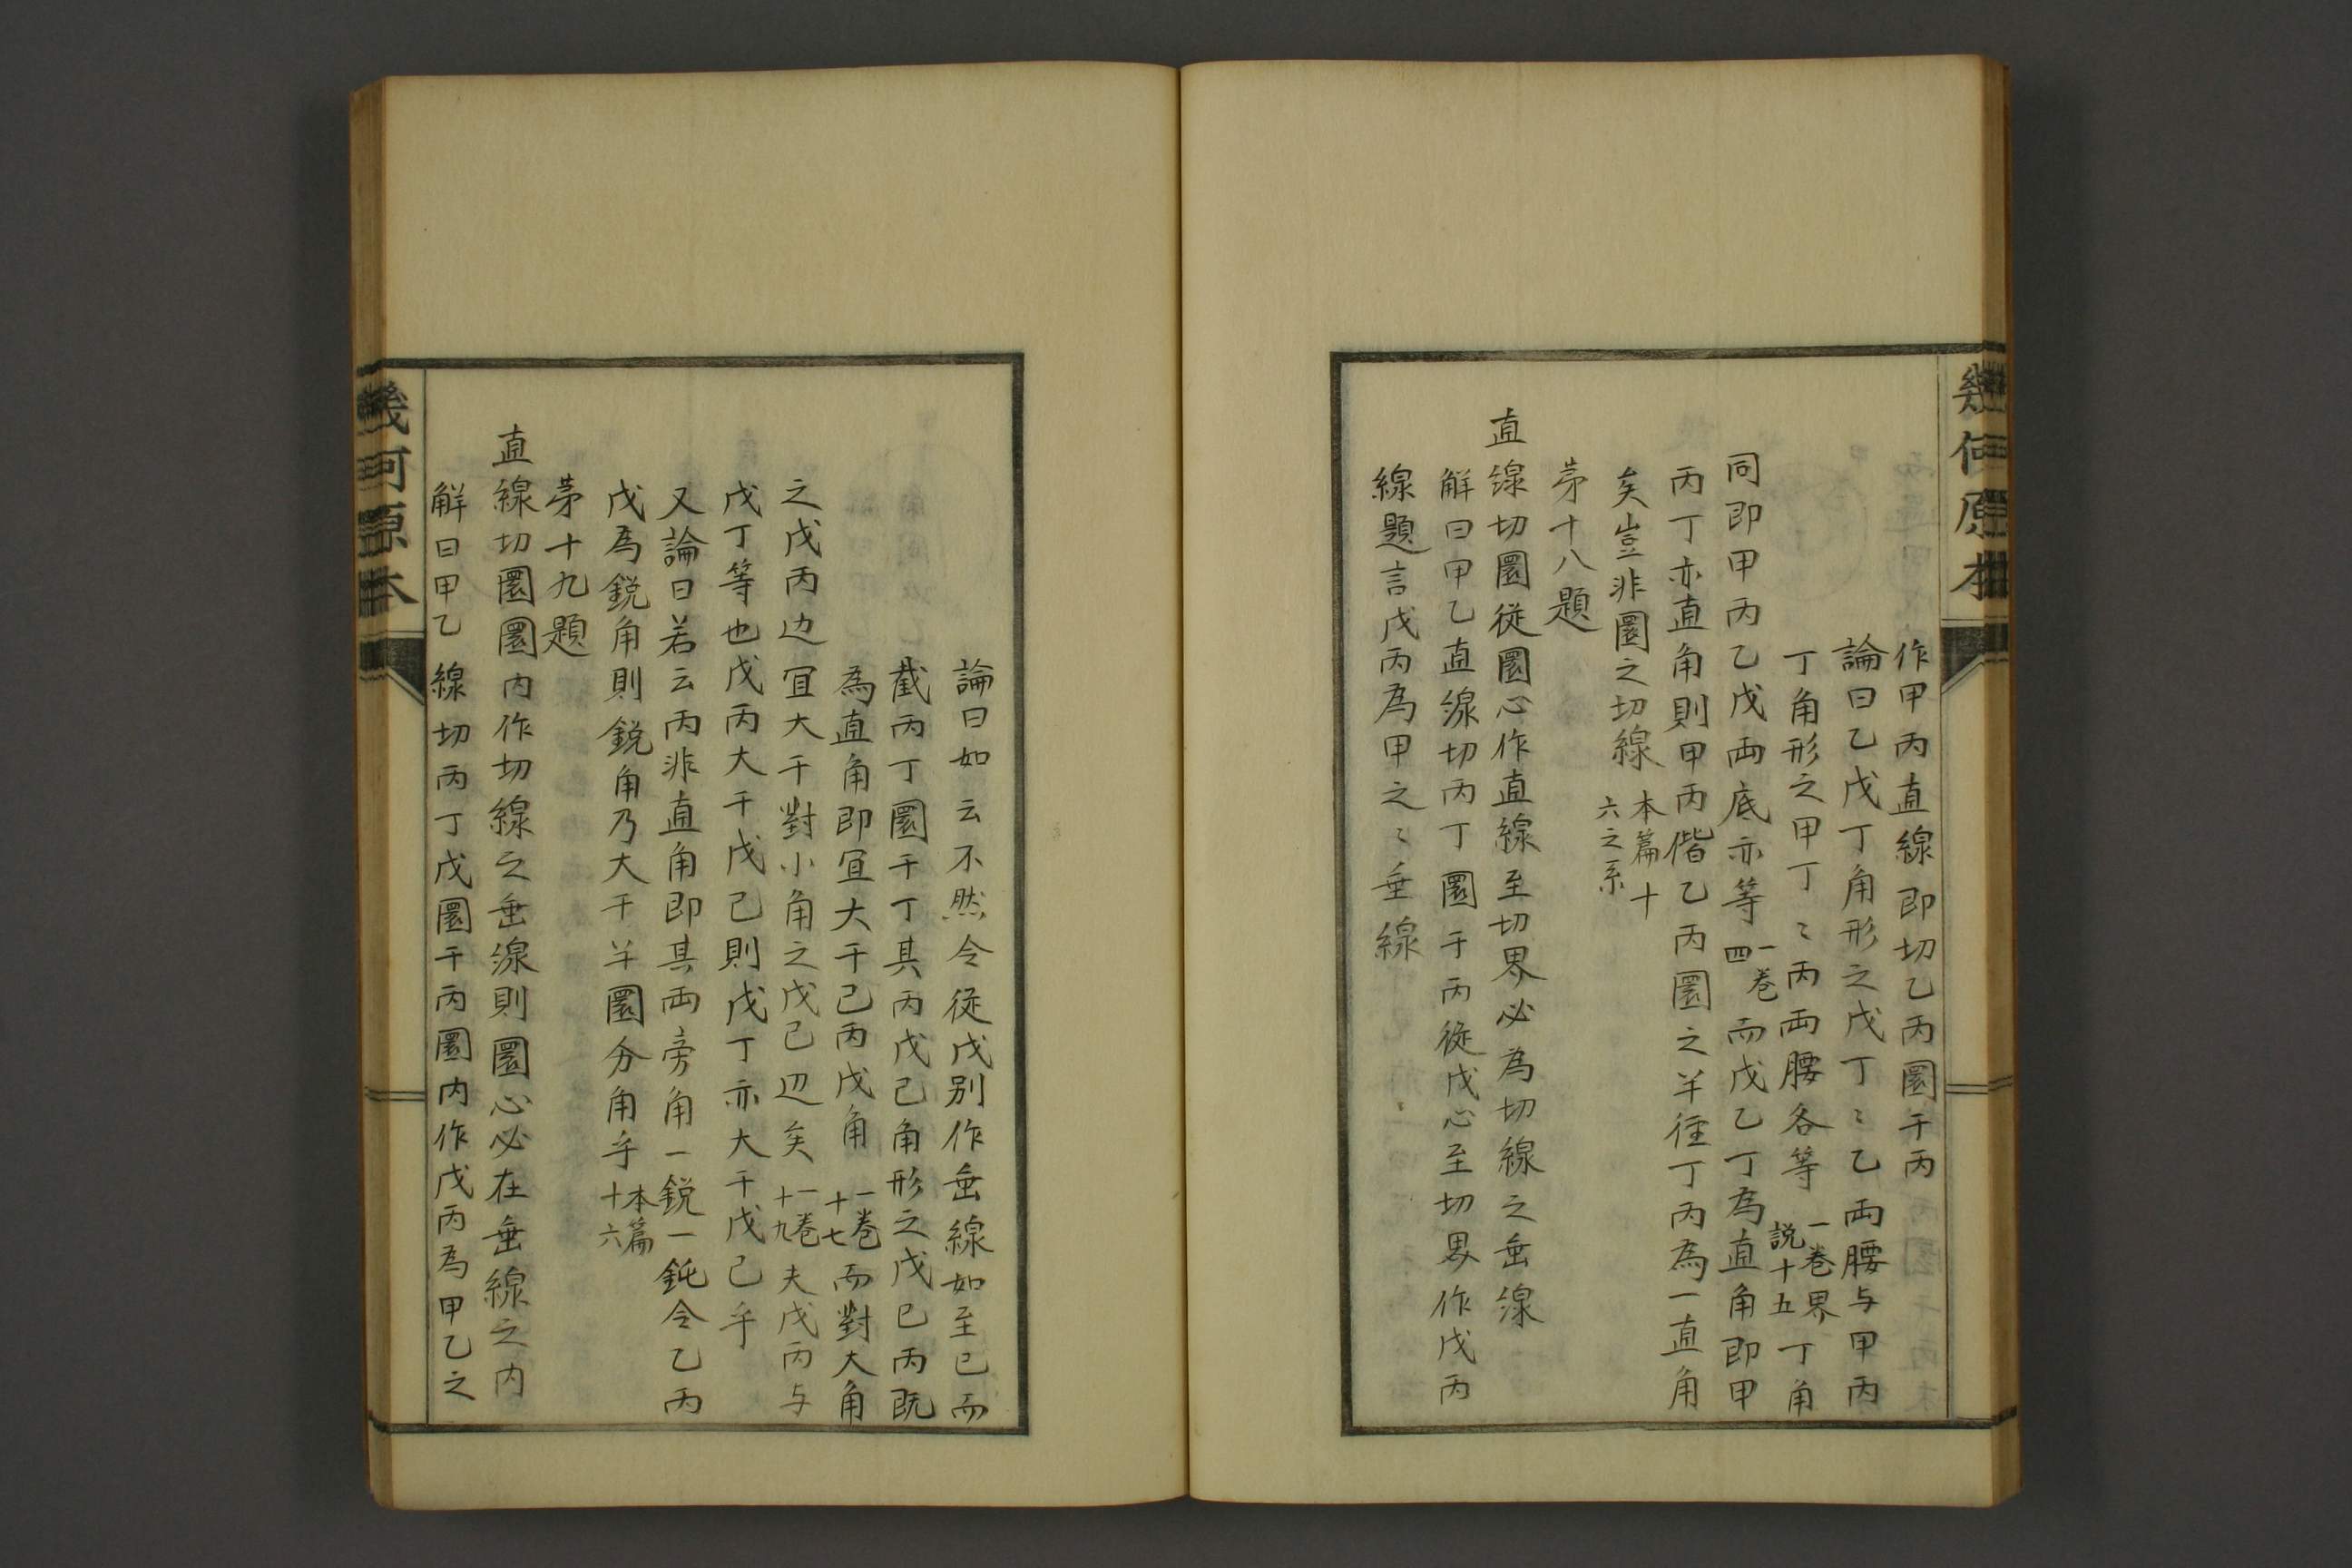 幾何原本
作甲丙直線即切乙丙圜于丙
論曰乙戊丁角形之戊丁〻乙両腰与甲丙
丁角形之甲丁〻丙両腰各等一卷界說十五丁角
同即甲丙乙戊両底亦等一卷四而戊乙丁為直角即甲
丙丁亦直角則甲丙偕乙丙圜之半徑丁丙為一直角
矣豈非圜之切線本篇十六之系
苐十八題
直線切圜從圜心作直線至切界必為切線之垂線
解曰甲乙直線切丙丁圜于丙從戊心至切界作戊丙
線題言戊丙為甲之〻垂線
論曰如云不然令從戊別作垂線如至己而
截丙丁圜于丁其丙戊己角形之戊己丙既
為直角即宜大于己丙戊角一卷十七而對大角
之戊丙边宜大于對小角之戊己边矣一卷十九夫戊丙与
戊丁等也戊丙大于戊己則戊丁亦大于戊己乎
又論曰若云丙非直角即其両旁角一銳一鈍令乙丙
戊為銳角則銳角乃大于半圜分角乎本篇十六
苐十九題
直線切圜圜内作切線之垂線則圜心必在垂線之内
解曰甲乙線切丙丁戊圜于丙圜内作戊丙為甲乙之
幾何原本